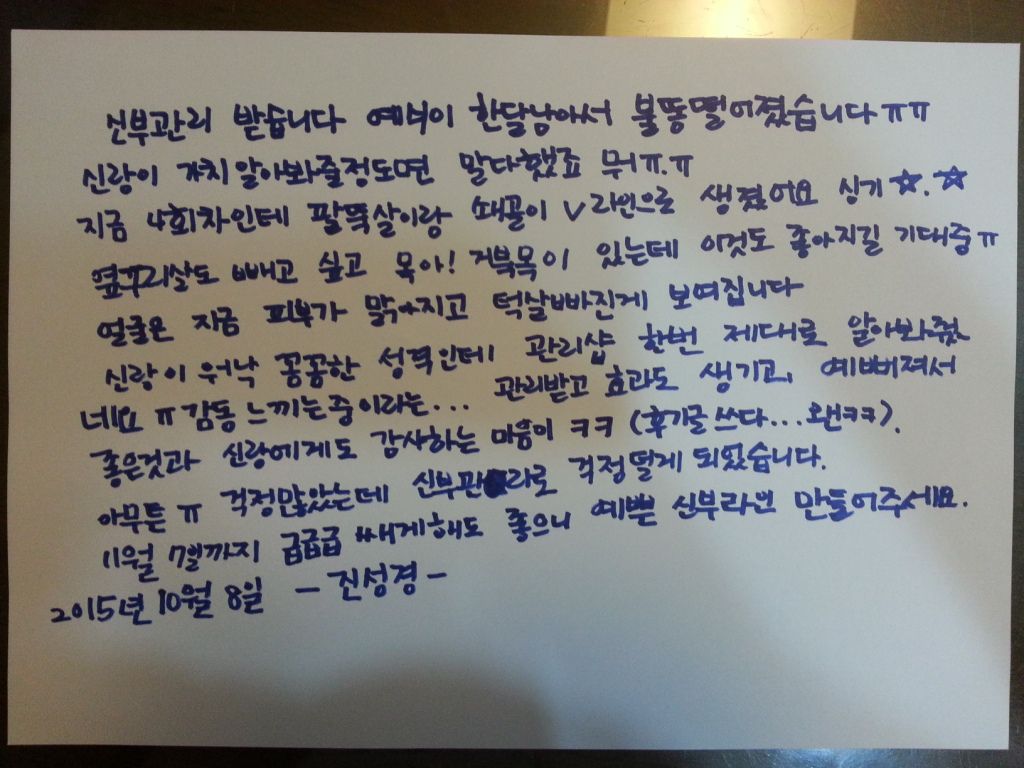 신부관리 받습니다 예식이 한달남아서 불똥떨어졌습니다ㅠㅠ
신랑이 가치 알아봐줄정도면 말다했죠 뭐ㅠ.ㅠ
지금 4회차인데 팔뚝살이랑 쇄골이 V라인으로 생겼어요 싱기☆.☆
옆꾸리살도 빼고 싶고 목아! 거북목이 있는데 이것도 좋아지길 기대중ㅠ
얼굴은 지금 피부가 맑아지고 턱살빠진게 보여집니다
신랑이 워낙 꼼꼼한 성격인데 관리샵 한번 제대로 알아봐줬
네요 ㅠ 감동 느끼는중이라는... 관리받고 효과도 생기고, 예뻐져서
좋은것과 신랑에게도 감사하는 마음이 ㅋㅋ (후기글 쓰다...왠ㅋㅋ).
아무튼 ㅠ 걱정많았는데 신부관리로 걱정덜게 되었습니다.
11월 7일까지 급급급 빡세게해도 좋으니 예쁜 신부라인 만들어주세요.
2015년 10월 8일 - 진성경 -